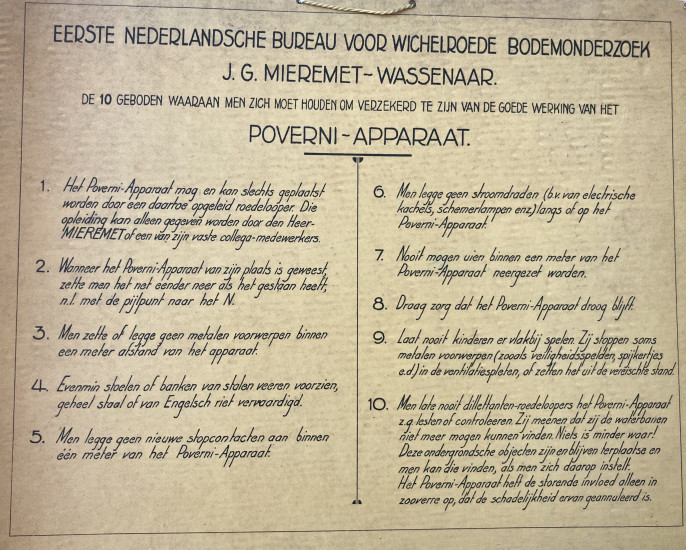 EERSTE NEDERLANDSCHE BUREAU VOOR WICHELROEDE BODEMONDERZOEK
J. G. MIEREMET-WASSENAAR.
DE 10 GEBODEN WAARAAN MEN ZICH MOET HOUDEN OM VERZEKERD TE ZIJN VAN DE GOEDE WERKING VAN HET
POVERNI-APPARAAT.
1. Het Poverni-Apparaat mag en kan slechts geplaatst
worden door een daartoe opgeleid roedelooper. Die
opleiding kan alleen gegeven worden door den Heer-
MIEREMET of een van zijn vaste collega-medewerkers.
2. Wanneer het Poverni-Apparaat van zijn plaats is geweest,
zette men het net eender neer als het gestaan heeft,
n.l. met de pijlpunt naar het N.
3. Men zette of legge geen metalen voorwerpen binnen
een meter afstand van het apparaat.
4. Evenmin stoelen of banken van stalen veeren voorzien,
geheel staal of van Engelsch riet vervaardigd.
5. Men legge geen nieuwe stopcontacten aan binnen
één meter van het Poverni-Apparaat.
6. Men legge geen stroomdraden (b.v. van electrische
kachels, schemerlampen enz) langs of op het
Poverni-Apparaat.
7. Nooit mogen uien binnen een meter van het
Poverni-Apparaat neergezet worden.
8. Draag zorg dat het Poverni-Apparaat droog blijft.
9. Laat nooit kinderen er vlakbij spelen. Zij stoppen soms
metalen voorwerpen (zooals veiligheidsspelden, spijkertjes
e.d) in de ventilatiespleten, of zetten het uit de vereischte stand.
10. Men late nooit dillettanten-roedeloopers het Poverni-Apparaat
z.g. testen of controleeren. Zij meenen dat zij de waterbanen
niet meer mogen kunnen vinden. Niets is minder waar!
Deze ondergrondsche objecten zijn en blijven ter plaatse en
men kan die vinden, als men zich daarop instelt.
Het Poverni-Apparaat heft de storende invloed alleen in
zooverre op, dat de schadelijkheid ervan geannuleerd is.